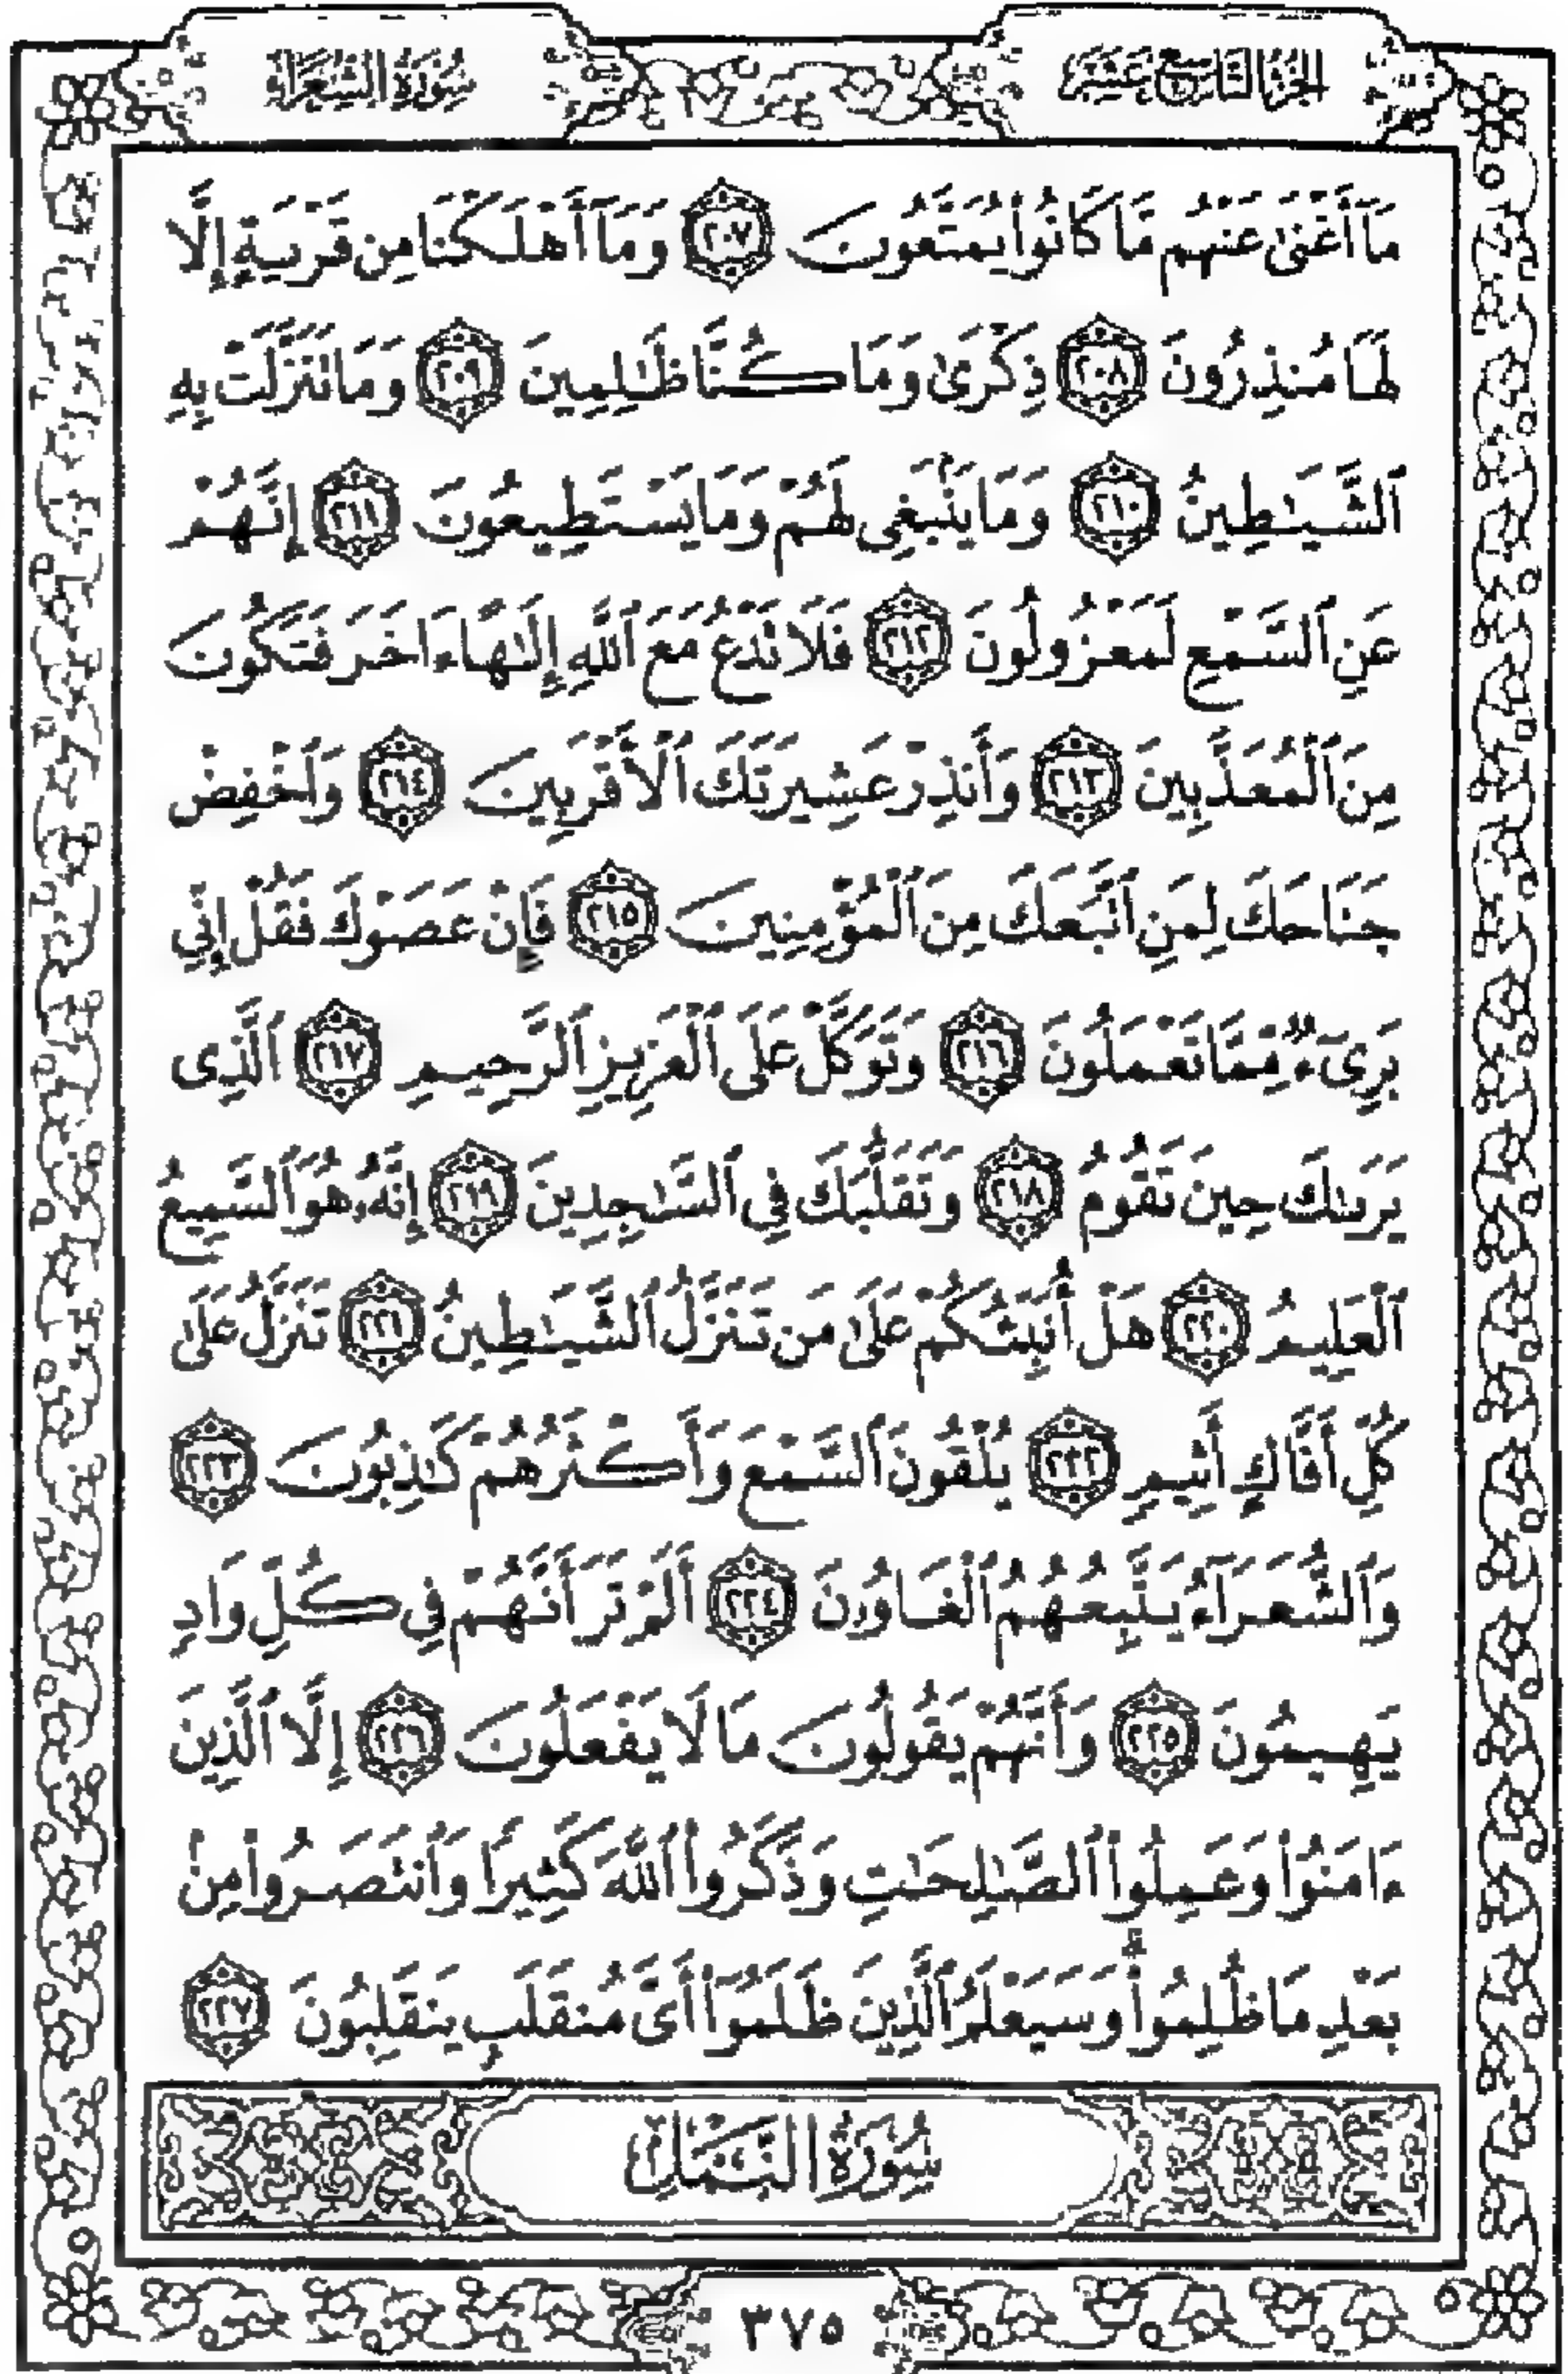 الجزء التاسع عشر
سورة الشعراء
مَآ أَغْنَىٰ عَنْهُم مَّا كَانُوا۟ يُمَتَّعُونَ ٢٠٧ وَمَآ أَهْلَكْنَا مِن قَرْيَةٍ إِلَّا
لَهَا مُنذِرُونَ ٢٠٨ ذِكْرَىٰ وَمَا كُنَّا ظَـٰلِمِينَ ٢٠٩ وَمَا تَنَزَّلَتْ بِهِ
ٱلشَّيَـٰطِينُ ٢١٠ وَمَا يَنۢبَغِى لَهُمْ وَمَا يَسْتَطِيعُونَ ٢١١ إِنَّهُمْ
عَنِ ٱلسَّمْعِ لَمَعْزُولُونَ ٢١٢ فَلَا تَدْعُ مَعَ ٱللَّهِ إِلَـٰهًا ءَاخَرَ فَتَكُونَ
مِنَ ٱلْمُعَذَّبِينَ ٢١٣ وَأَنذِرْ عَشِيرَتَكَ ٱلْأَقْرَبِينَ ٢١٤ وَٱخْفِضْ
جَنَاحَكَ لِمَنِ ٱتَّبَعَكَ مِنَ ٱلْمُؤْمِنِينَ ٢١٥ فَإِنْ عَصَوْكَ فَقُلْ إِنِّى
بَرِىٓءٌ مِّمَّا تَعْمَلُونَ ٢١٦ وَتَوَكَّلْ عَلَى ٱلْعَزِيزِ ٱلرَّحِيمِ ٢١٧ ٱلَّذِى
يَرَىٰكَ حِينَ تَقُومُ ٢١٨ وَتَقَلُّبَكَ فِى ٱلسَّـٰجِدِينَ ٢١٩ إِنَّهُۥ هُوَ ٱلسَّمِيعُ
ٱلْعَلِيمُ ٢٢٠ هَلْ أُنَبِّئُكُمْ عَلَىٰ مَن تَنَزَّلُ ٱلشَّيَـٰطِينُ ٢٢١ تَنَزَّلُ عَلَىٰ
كُلِّ أَفَّاكٍ أَثِيمٍ ٢٢٢ يُلْقُونَ ٱلسَّمْعَ وَأَكْثَرُهُمْ كَـٰذِبُونَ ٢٢٣
وَٱلشُّعَرَآءُ يَتَّبِعُهُمُ ٱلْغَاوُۥنَ ٢٢٤ أَلَمْ تَرَ أَنَّهُمْ فِى كُلِّ وَادٍ
يَهِيمُونَ ٢٢٥ وَأَنَّهُمْ يَقُولُونَ مَا لَا يَفْعَلُونَ ٢٢٦ إِلَّا ٱلَّذِينَ
ءَامَنُوا۟ وَعَمِلُوا۟ ٱلصَّـٰلِحَـٰتِ وَذَكَرُوا۟ ٱللَّهَ كَثِيرًا وَٱنتَصَرُوا۟ مِنۢ
بَعْدِ مَا ظُلِمُوا۟ ۗ وَسَيَعْلَمُ ٱلَّذِينَ ظَلَمُوٓا۟ أَىَّ مُنقَلَبٍ يَنقَلِبُونَ ٢٢٧
سُورَةُ النَّمْلِ
٣٧٥